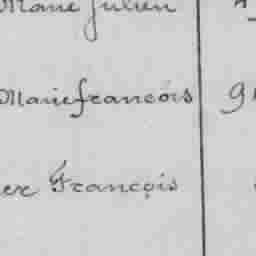 Marie Julien
Marie francois 9
er François